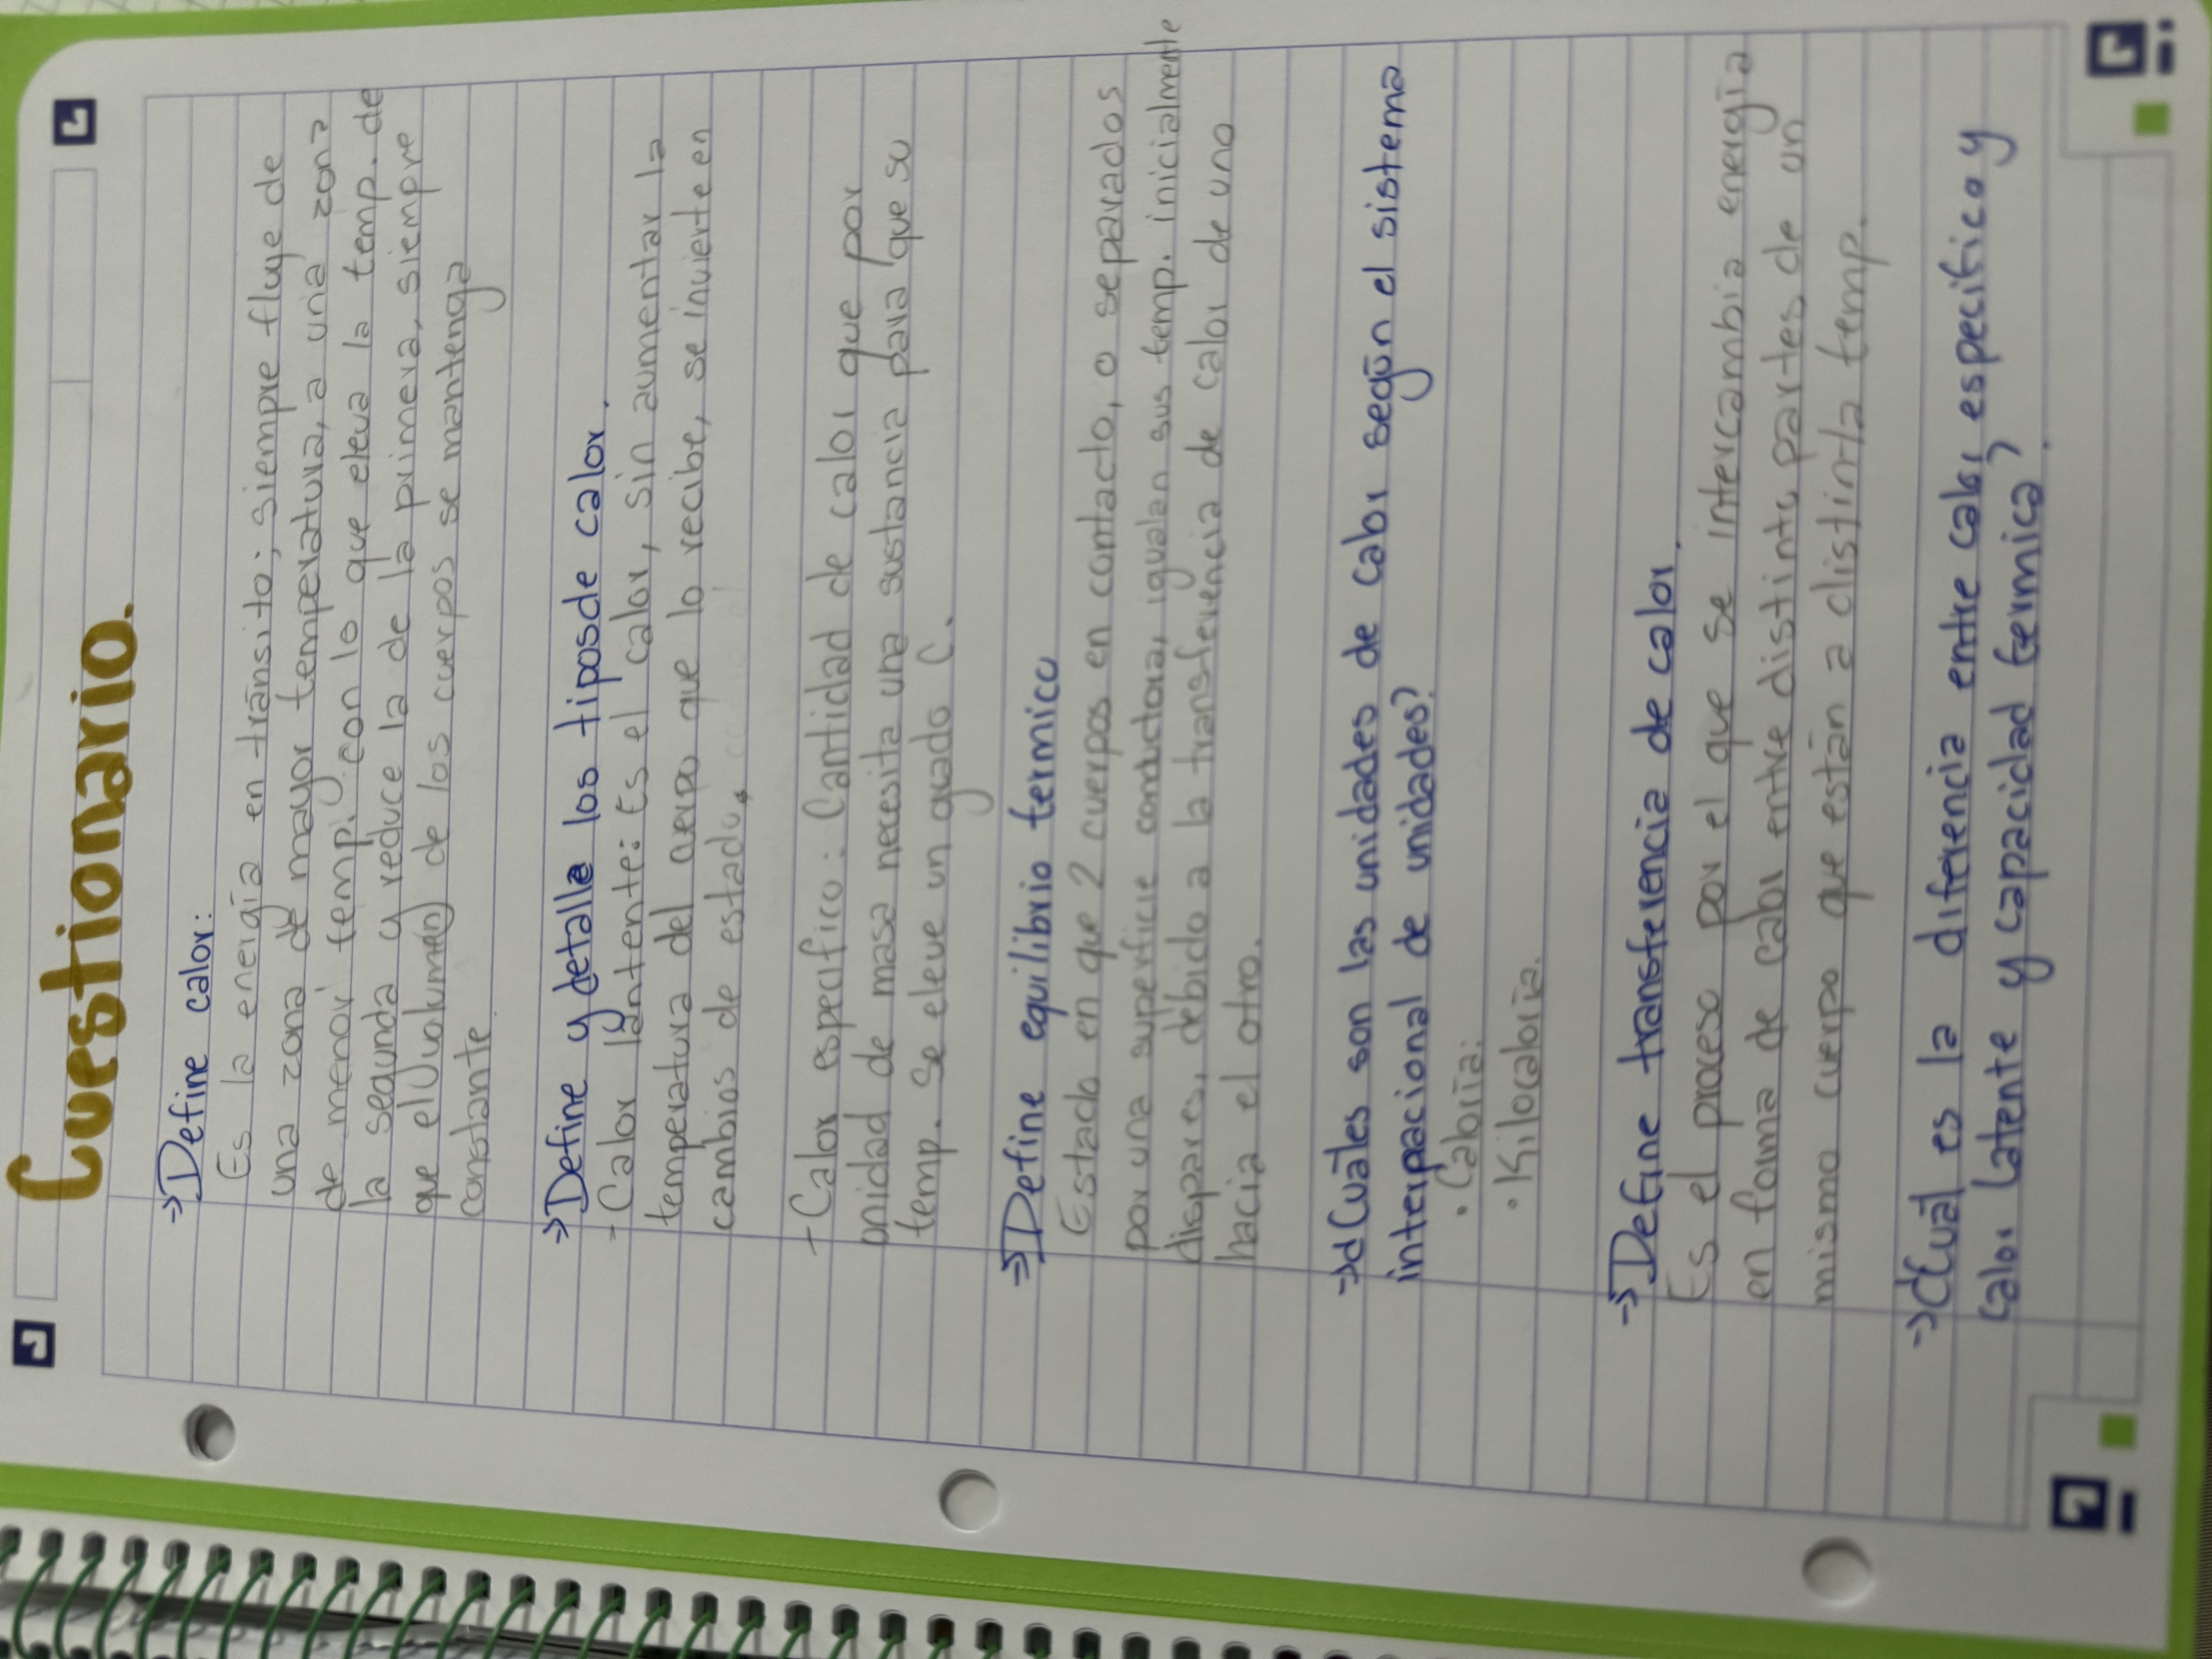 Cuestionario.
→Define calor:
Es la energía en tránsito; siempre fluye de
una zona de mayor temperatura, a una zona
de menor temp. con lo que eleva la temp. de
la segunda y reduce la de la primera, siempre
que el volumen de los cuerpos se mantenga
constante.
→Define y detalle los tiposde calor.
- Calor lantente: Es el calor, sin aumentar la
temperatura del cuerpo que lo recibe, se invierte en
cambios de estado.
- Calor especifico: Cantidad de calor que por
unidad de masa necesita una sustancia para que su
temp. Se eleve un grado C.
→Define equilibrio termico
Estado en que 2 cuerpos en contacto, o separados
por una superficie conductora, igualan sus temp. inicialmente
dispares, debido a la transferencia de calor de uno
hacia el otro.
→¿Cuáles son las unidades de calor según el sistema
internacional de unidades?
• Caloría:
• Kilocaloría.
→Define transferencia de calor.
Es el proceso por el que se intercambia energía
en forma de calor entre distinta partes de un
mismo cuerpo que están a distinta temp.
→¿Cuál es la diferencia entre calor específico y
calor latente y capacidad termica?